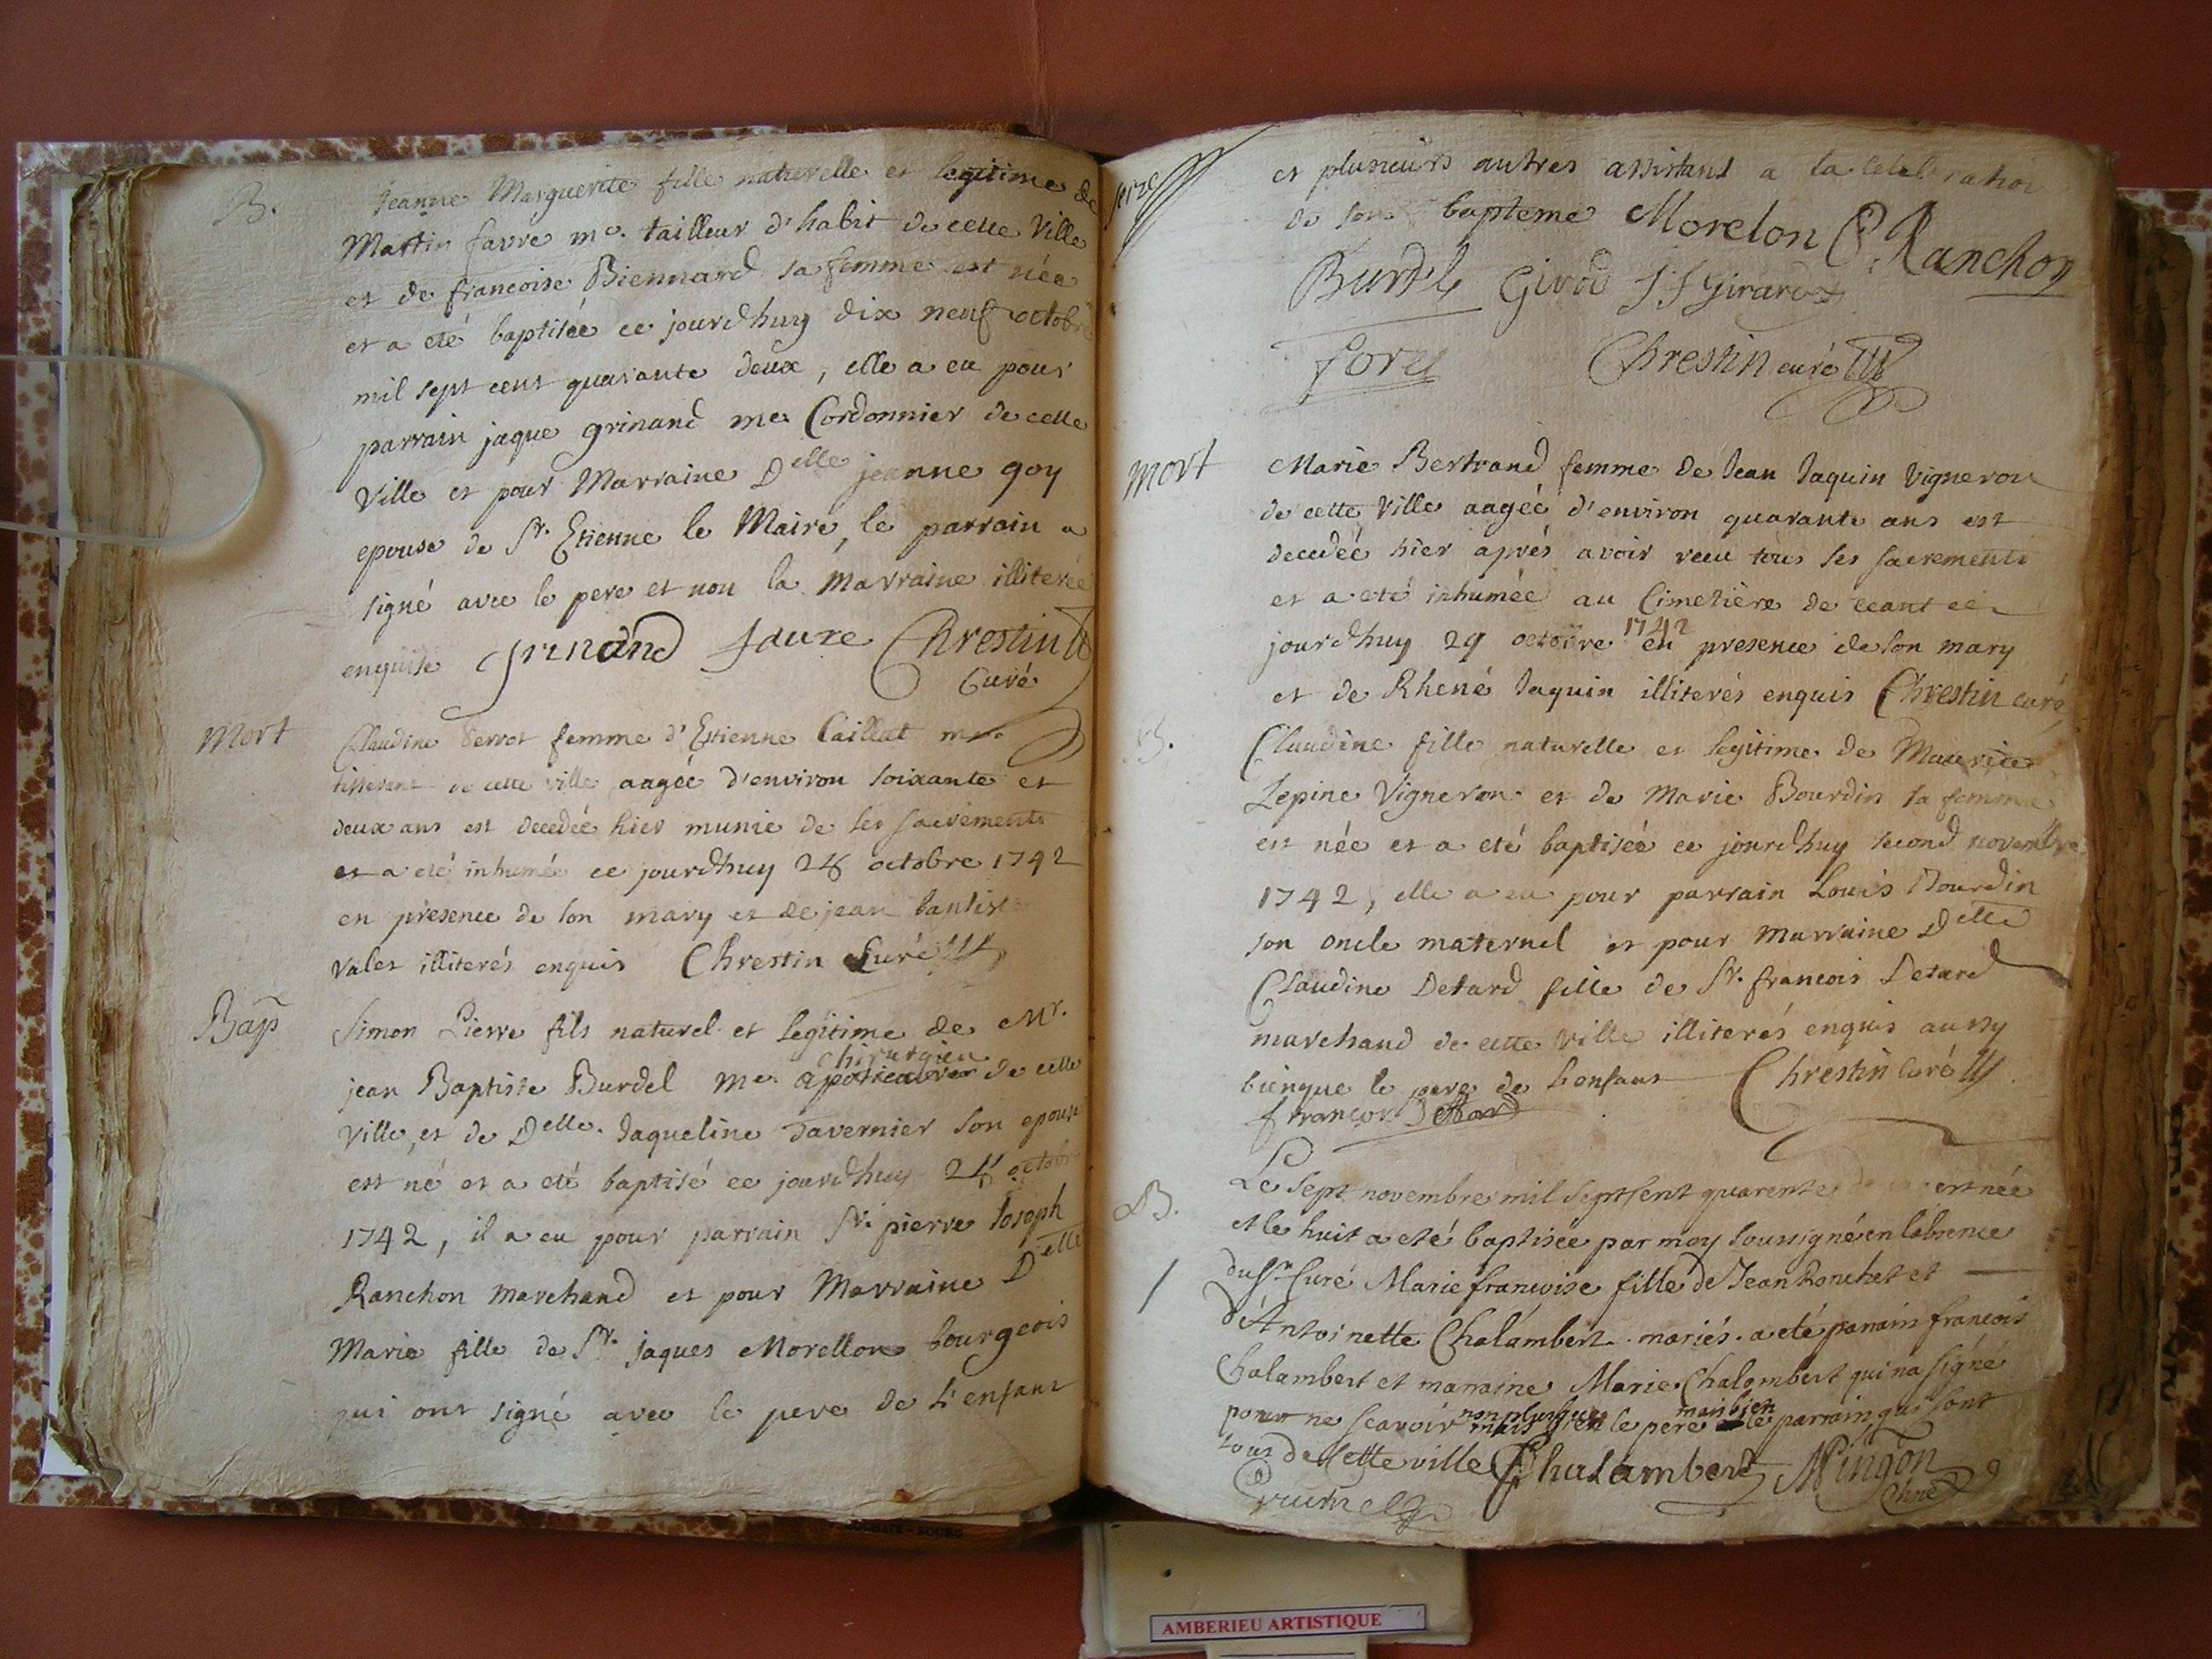 B.
Jeanne Marguerite fille naturelle et legitime de
Martin favre me. tailleur d'habit de cette Ville
et de francoise Biennard sa femme est née
et a eté baptisée ce jourdhuy dix neuf octobre
mil sept cent quarante deux, elle a eu pour
parrain jaque grinand me Cordonnier de cette
Ville et pour Marraine Delle jeanne goy
epouse de Sr. Etienne le Maire, le parrain a
signé avec le pere et non la marraine illiterée
enquise grinand faure Chrestin
Curé
Mort
Claudine femme d'Estienne Caillat me
tisserant de cette ville aagée d'environ soixante et
deux ans est decedée hier munie de ses sacrements
et a eté inhumée ce jourdhuy octobre 1742
en presence de son mary et de jean baptiste
Valet illiterés enquis Chrestin Curé
Bap
Simon Pierre fils naturel et legitime de Mr.
chirurgien
jean Baptiste Burdel me. apoticaire de cette
Ville, et de Delle. Jaqueline Tavernier son epouse
est né et a eté baptisé ce jourdhuy octobre
1742, il a eu pour parrain Sr. pierre Joseph
Ranchon marchand et pour Marraine Delle
Marie fille de Sr. jaques Morellon bourgeois
qui ont signé avec le pere de l'enfant
seize
et plusieurs autres assistans a la celebration
de son bapteme Morelon Ranchon
Burdel Girod J J Girard
forel Chrestin curé
Mort
Marie Bertrand femme de Jean Jaquin Vigneron
de cette Ville aagée d'environ quarante ans est
decedée hier aprés avoir receu tous ses sacrements
et a eté inhumée au Cimetière de ceant ce
1742
jourdhuy 29 octobre en presence de son mary
et de Rhené Jaquin illiterés enquis Chrestin curé
B.
Claudine fille naturelle et legitime de Maurice
Lepine Vigneron et de Marie Bourdin sa femme
est née et a eté baptisée ce jourdhuy second novembre
1742, elle a eu pour parrain Louis Bourdin
son oncle maternel et pour marraine Delle
Claudine Detard fille de Sr. francois Detard
marchand de cette Ville illiterés enquis aussy
bienque le pere de l'enfant Chrestin Curé
francois Detard
B.
Le Sept novembre mil Sept Cent quarente est née
et le huit a eté baptisée par moy soussigné en labsence
du Sr Curé Marie francoise fille de Jean Ronchet et
d'Antoinette Chalambert mariés. a eté parrain francois
Chalambert et marraine Marie Chalambert qui na signé
non plus que mais bien
pour ne scavoir le pere le parrain qui sont
tous de Cette ville Chalambert Mingon